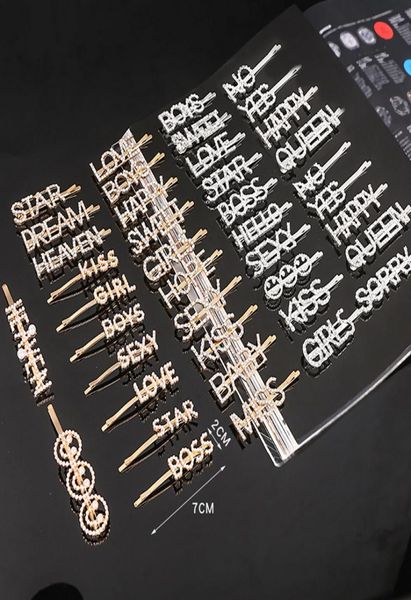 STAR
DREAM
HEAVEN
KISS
GIRL
BOYS
SEXY
LOVE
STAR
BOSS
2CM
7CM
LOVE
BOYS
HAPPY
SWEET
GIRL
HOPE
SEXY
KISS
BABY
MISS
BOYS
SWEET
LOVE
STAR
BOSS
HELLO
SEXY
KISS
GIRLS
NO
YES
HAPPY
QUEEN
NO
YES
HAPPY
QUEEN
SORRY